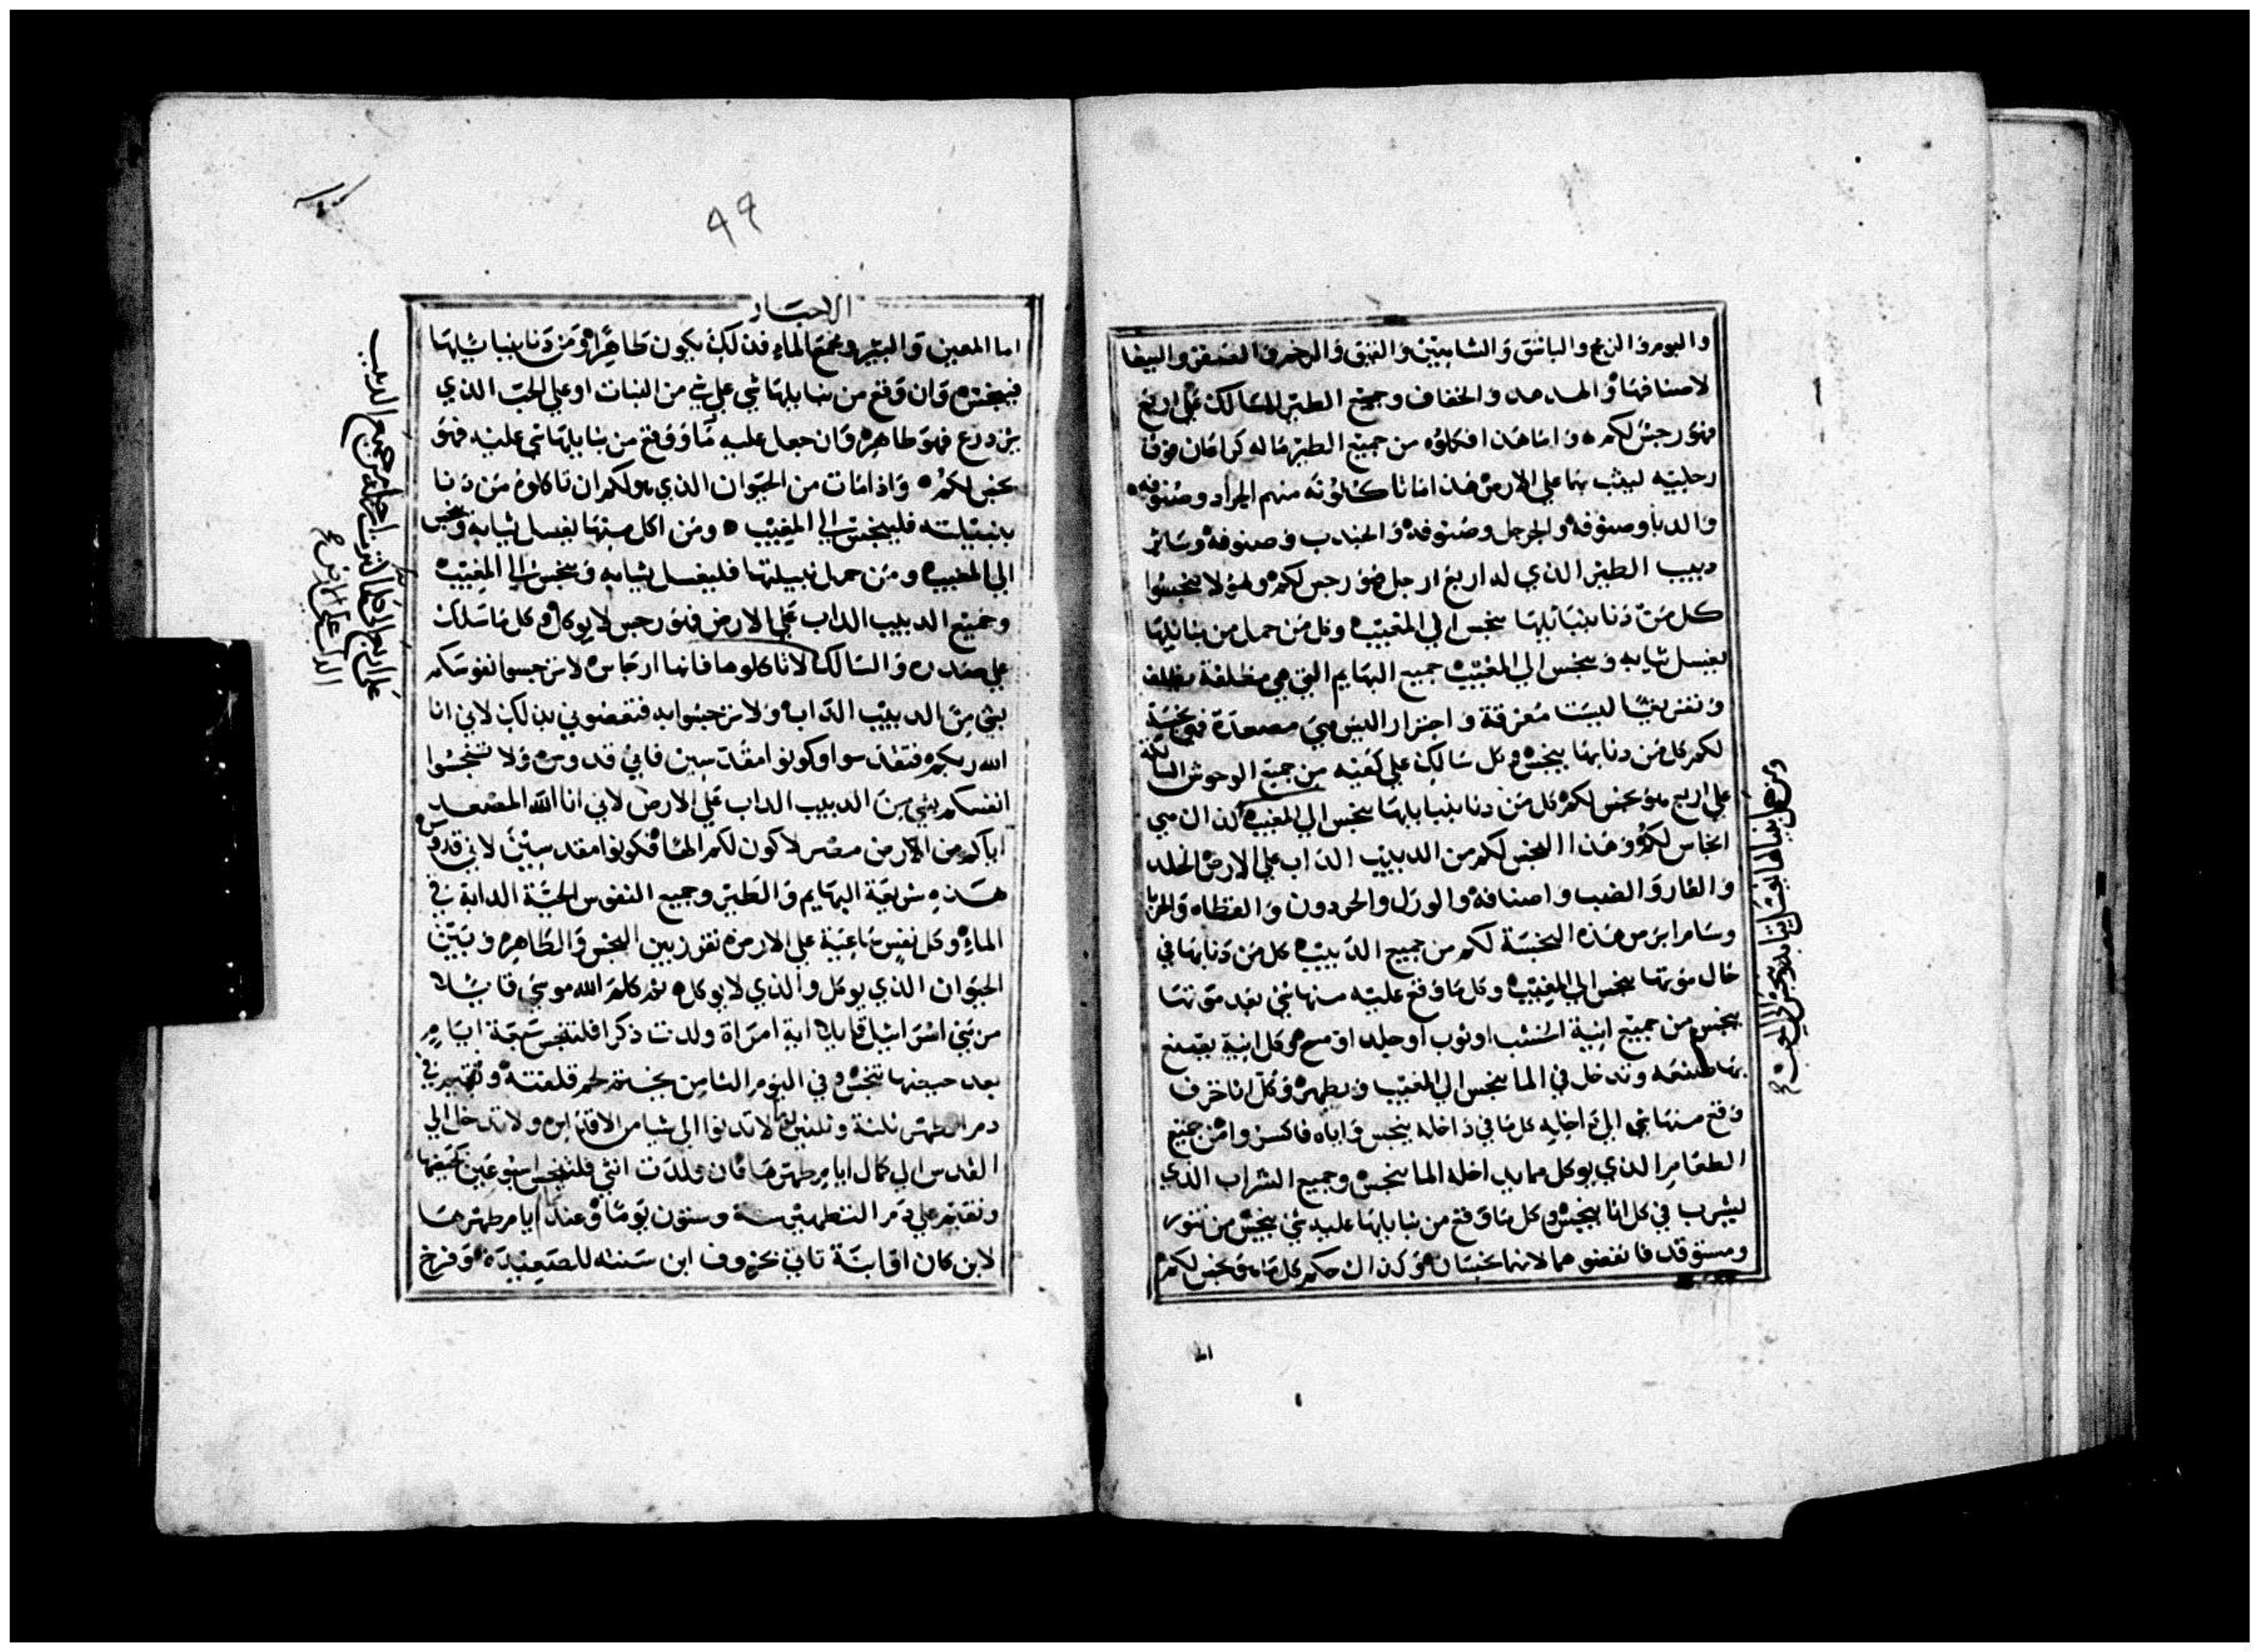 والبوم والزمج والباشق والشاهين والنهق والرخم والصفر والببغا
لاصنافها والهدهد والخفاف وجميع الطير السالك علي اربع
فهو رجس لكم واما هذا فكلوه من جميع الطير ما له كراعان فوق
رجليه ليثب بها علي الارض هذا اما تاكلونه منهم الجراد وصنوفه
والدبا وصنوفه والجرجل وصنوفه والجندب وصنوفه وسائر
دبيب الطير الذي له اربع ارجل فهو رجس لكم ولا تنجسوا
كل من دنا بنبائلها ينجس الي المغيب وكل من حمل من نبائلها
يغسل ثيابه وينجس الي المغيب جميع البهايم التي هي مظلفة بظلف
وتفريقا ليست مفرقة واجترار ليس هي مصعدة فهي نجسة
لكم كل من دنا بها ينجس وكل سالك علي كفيه من جميع الوحوش السالكة
علي اربع هو نجس لكم كل من دنا بنبايلها ينجس الي المغيب لان هي
انجاس لكم وهذا النجس لكم من الدبيب الداب علي الارض الخلد
والفار والضب واصنافه والورل والحردون والعظاه والحربا
وسام ابرص هذه النجسة لكم من جميع الدبيب كل من دنا بها في
حال موتها ينجس الي المغيب وكل ما وقع عليه منها شي بعد موتها
ينجس من جميع انية الخشب او ثوب او جلد او مسح كل انية يصنع
بها صنعه وتدخل في الما ينجس الي المغيب ويطهر وكل انا خزف
وقع منها شي الي داخله كل ما في داخله ينجس واياه فاكسروا من جميع
الطعام الذي يوكل مما يداخله الما ينجس وجميع الشراب الذي
يشرب في كل انا ينجس وكل ما وقع من نبايلها عليه شي ينجس من تنور
ومستوقد فانقضوهما لانهما نجسان وكذالك حكم كل ما هو نجس لكم
ومن حمل نبايلها يغسل ثيابه وينجس الي المغيب
اما
٩٩
الاحبار
اما المعين والبير ومجمع الماء فذلك يكون طاهرا ومن دنا بنبائلها
فينجس وان وقع من نبايلها شي علي شي من النبات او علي الحب الذي
يزدرع فهو طاهر وان جعل عليه ما ووقع من نبايلها شي عليه فهو
نجس لكم واذا مات من الحيوان الذي هو لكم ان تاكلوه من دنا
بنبيلته فلينجس الي المغيب ومن اكل منها يغسل ثيابه وينجس
الي المغيب ومن حمل نبيلتها فليغسل ثيابه وينجس الي المغيب
وجميع الدبيب الداب علي الارض فهو رجس لا يوكل وكل ما سلك
علي صدره والسالك لا تاكلوها فانها ارجاس لا ترجسوا نفوسكم
بشي من الدبيب الداب ولا ترجسوا به فتنقضوني بذلك لاني انا
الله ربكم فتقدسوا وكونوا مقدسين فاني قدوس ولا تنجسوا
انفسكم بشي من الدبيب الداب علي الارض لاني انا الله المصعد
اياكم من الارض مصر لاكون لكم الها فكونوا مقدسين لاني قدوس
هذه شريعة البهايم والطير وجميع النفوس الحية الدابة في
الماء وكل نفس ساعية علي الارض تفرز بين النجس والطاهر وبين
الحيوان الذي يوكل والذي لا يوكل ثم كلم الله موسي قايلا
مر بني اسرائيل قايلا اية امراة ولدت ذكرا فلتنجس سبعة ايام
بعد حيضها تنجس وفي اليوم الثامن يختتن لحم قلفته وتقيم في
دم الطهر ثلثة وثلثين يوما لا تدنوا الي شيا من الاقداس ولا تدخل الي
القدس الي كمال ايام طهرها فان ولدت انثي فلتنجس اسبوعين كحيضها
وتقيم علي دم التطهير ستة وستون يوما وعند ايام طهرها
لابن كان او ابنة تاتي بخروف ابن سنته للصعيدة وفرخ
علي اربع من جميع الدبيب
الداب علي الارض